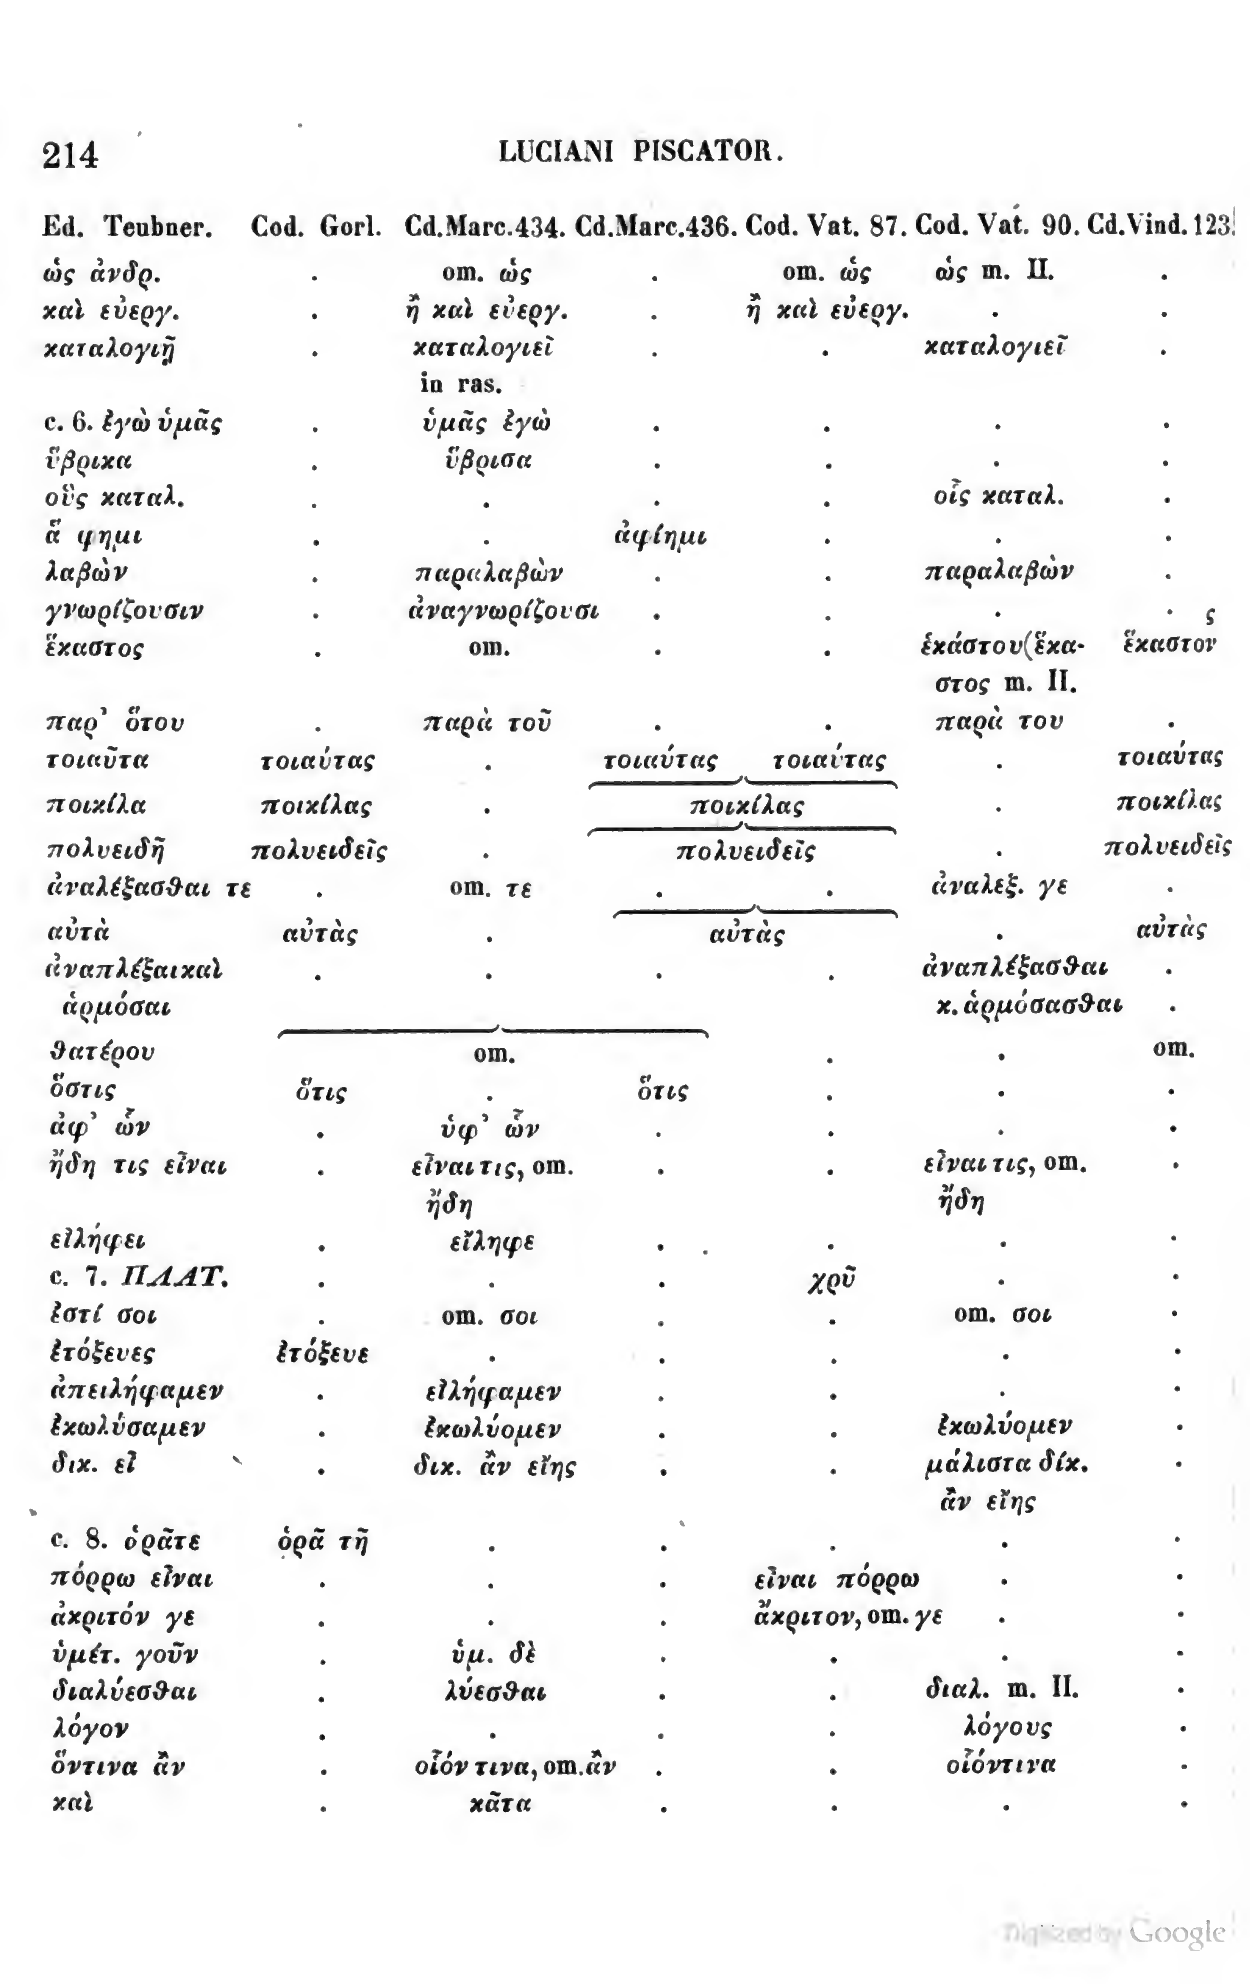 214 LUCIANI PISCATOR.
Ed. Teubner. Cod. Gorl. Cd.Marc.434. Cd.Marc.436. Cod. Vat. 87. Cod. Vat. 90. Cd.Vind.123.
ὡς ἀνδρ. . om. ὡς . om. ὡς ὡς m. II. .
καὶ εὐεργ. . ἢ καὶ εὐεργ. . ἢ καὶ εὐεργ. . .
καταλογιῇ . καταλογιεῖ . . καταλογιεῖ .
in ras.
c. 6. ἐγὼ ὑμᾶς . ὑμᾶς ἐγὼ . . . .
ὕβρικα . ὕβρισα . . . .
οὓς καταλ. . . . . οἷς καταλ. .
ἅ φημι . . ἀφίημι . . .
λαβὼν . παραλαβὼν . . παραλαβὼν .
γνωρίζουσιν . ἀναγνωρίζουσι . . . . ς
ἕκαστος . om. . . ἑκάστου(ἕκα- ἕκαστον
στος m. II.
παρ’ ὅτου . παρὰ τοῦ . . παρὰ του .
τοιαῦτα τοιαύτας . τοιαύτας τοιαύτας . τοιαύτας
ποικίλα ποικίλας . ποικίλας . ποικίλας
πολυειδῆ πολυειδεῖς . πολυειδεῖς . πολυειδεῖς
ἀναλέξασθαι τε . om. τε . . ἀναλεξ. γε .
αὐτὰ αὐτὰς . αὐτὰς . αὐτὰς
ἀναπλέξαι καὶ . . . . ἀναπλέξασθαι .
ἁρμόσαι κ. ἁρμόσασθαι .
θατέρου om. . . om.
ὅστις ὅτις . ὅτις . . .
ἀφ’ ὧν . ὑφ’ ὧν . . . .
ἤδη τις εἶναι . εἶναι τις, om. . . εἶναι τις, om. .
ἤδη ἤδη
εἰλήφει . εἴληφε . . . . .
c. 7. ΠΛΑΤ. . . . χρῦ . .
ἐστί σοι . om. σοι . . om. σοι .
ἐτόξευες ἐτόξευε . . . . .
ἀπειλήφαμεν . εἰλήφαμεν . . . .
ἐκωλύσαμεν . ἐκωλύομεν . . ἐκωλύομεν .
δικ. εἶ . δικ. ἂν εἴης . . μάλιστα δίκ. .
ἂν εἴης
c. 8. ὁρᾶτε ὁρᾶ τῆ . . . . .
πόρρω εἶναι . . . εἶναι πόρρω . .
ἀκριτόν γε . . . ἄκριτον, om. γε . .
ὑμέτ. γοῦν . ὑμ. δὲ . . . .
διαλύεσθαι . λύεσθαι . . διαλ. m. II. .
λόγον . . . . λόγους .
ὅντινα ἂν . οἷόν τινα, om. ἂν . . οἷόντινα .
καὶ . κᾆτα . . . .
Digitized by Google